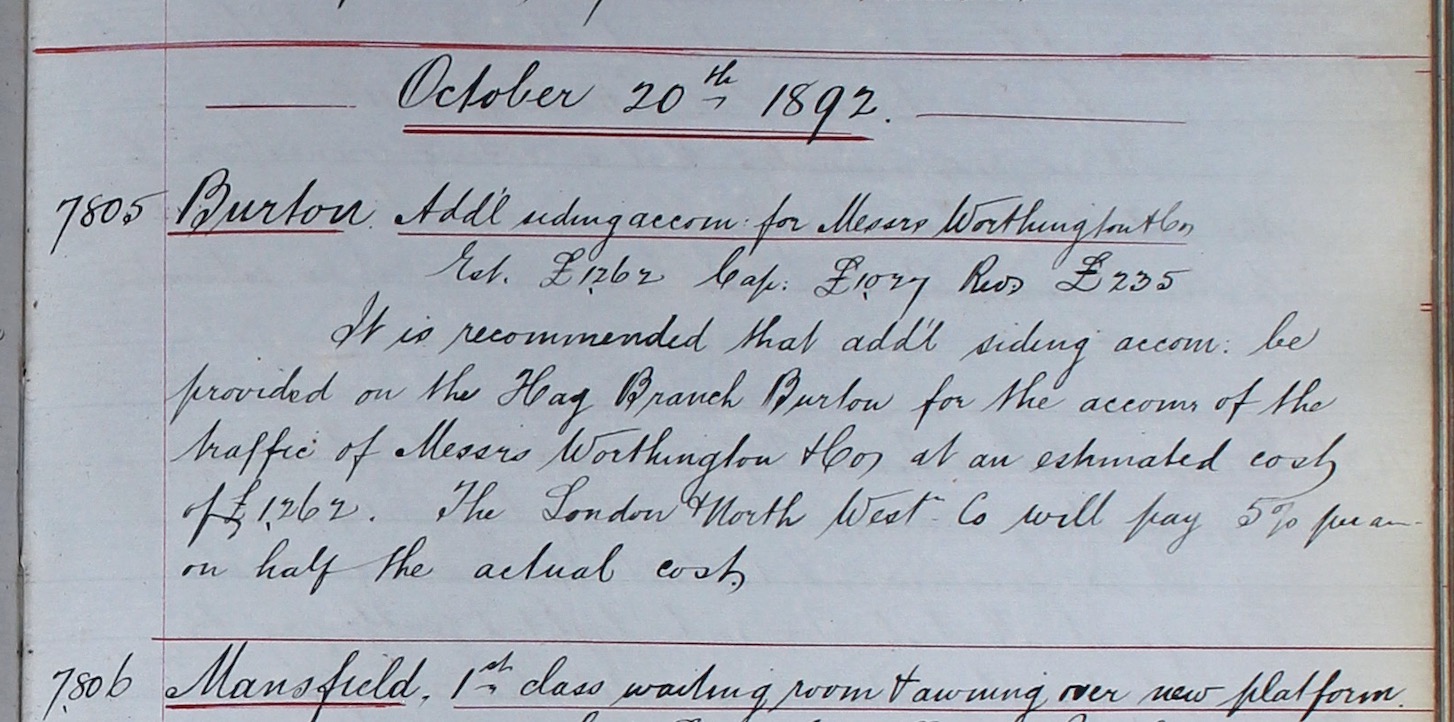 October 20th 1892.
7805 Burton. Add'l siding accom: for Messrs Worthington & Co
Est. £1262 Cap: £1027 Rev £235
It is recommended that add'l siding accom: be
provided on the Hay Branch Burton for the accom of the
traffic of Messrs Worthington & Co at an estimated cost
of £1262. The London & North Westn Co will pay 5% per an
on half the actual cost
7806 Mansfield. 1st class waiting room & awning over new platform.